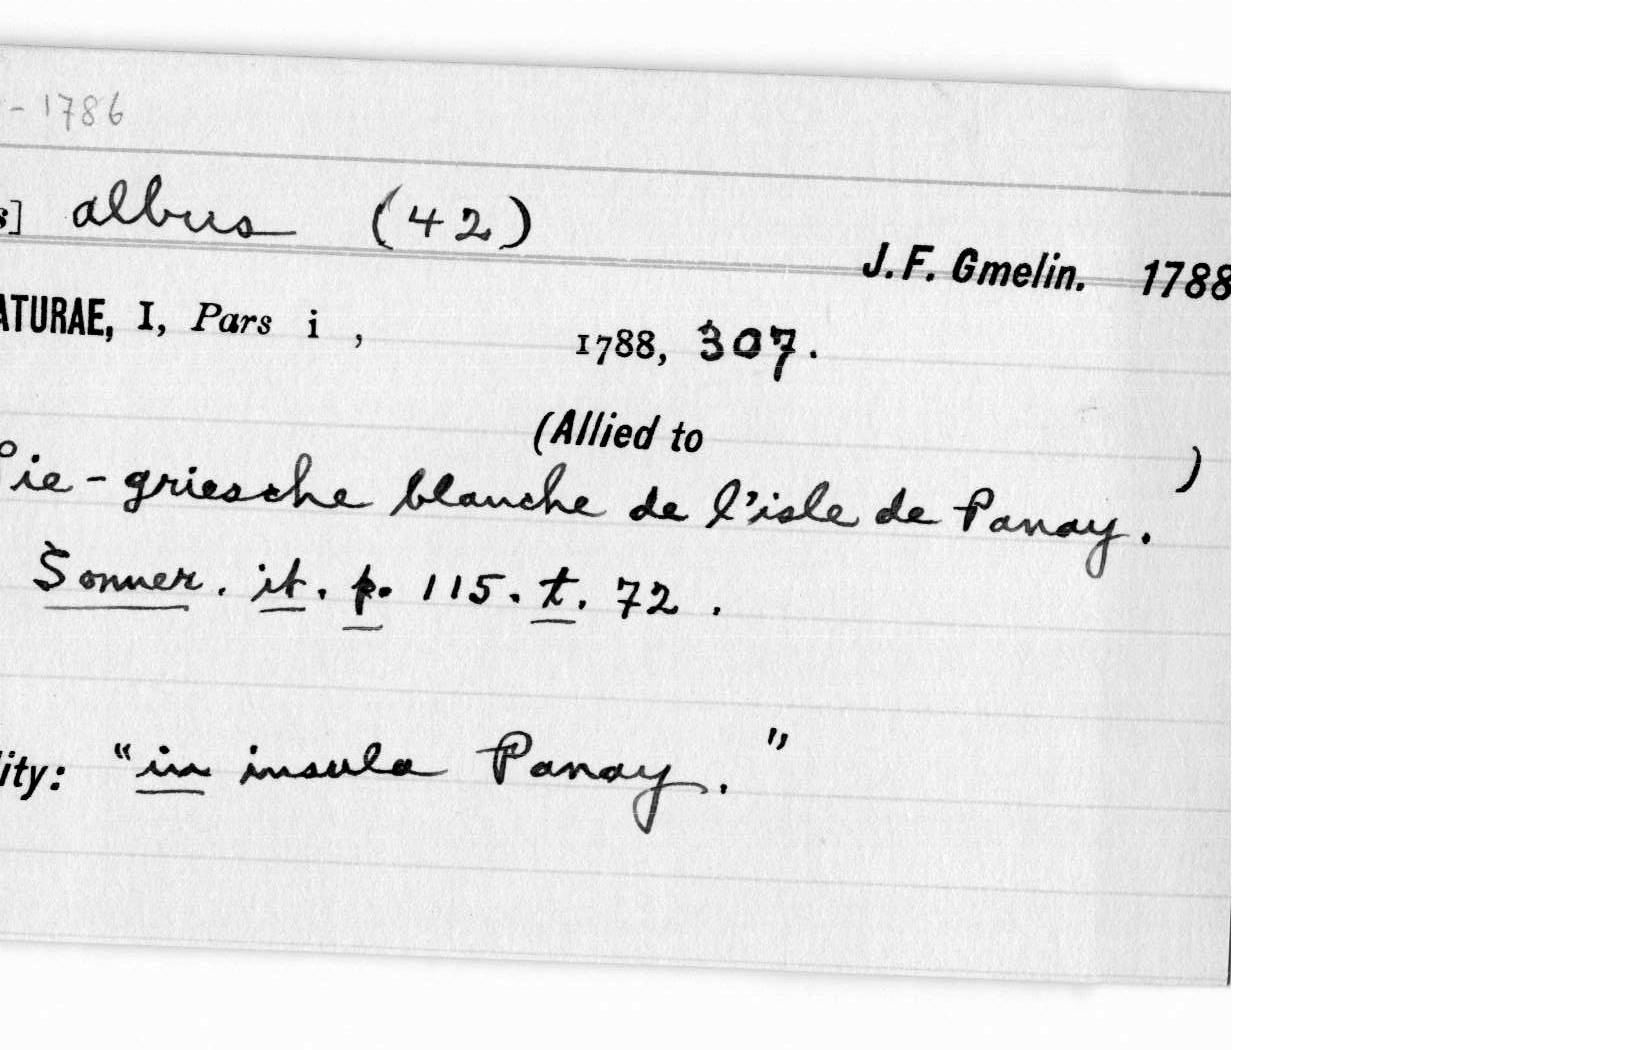 - 1786
s] albus (42)
J. F. Gmelin. 1788
ATURAE, I, Pars i , 1788, 307.
(Allied to )
Pie-griesche blanche de l'isle de Panay.
Sonner. it. p. 115. t. 72.
lity: "in insula Panay."